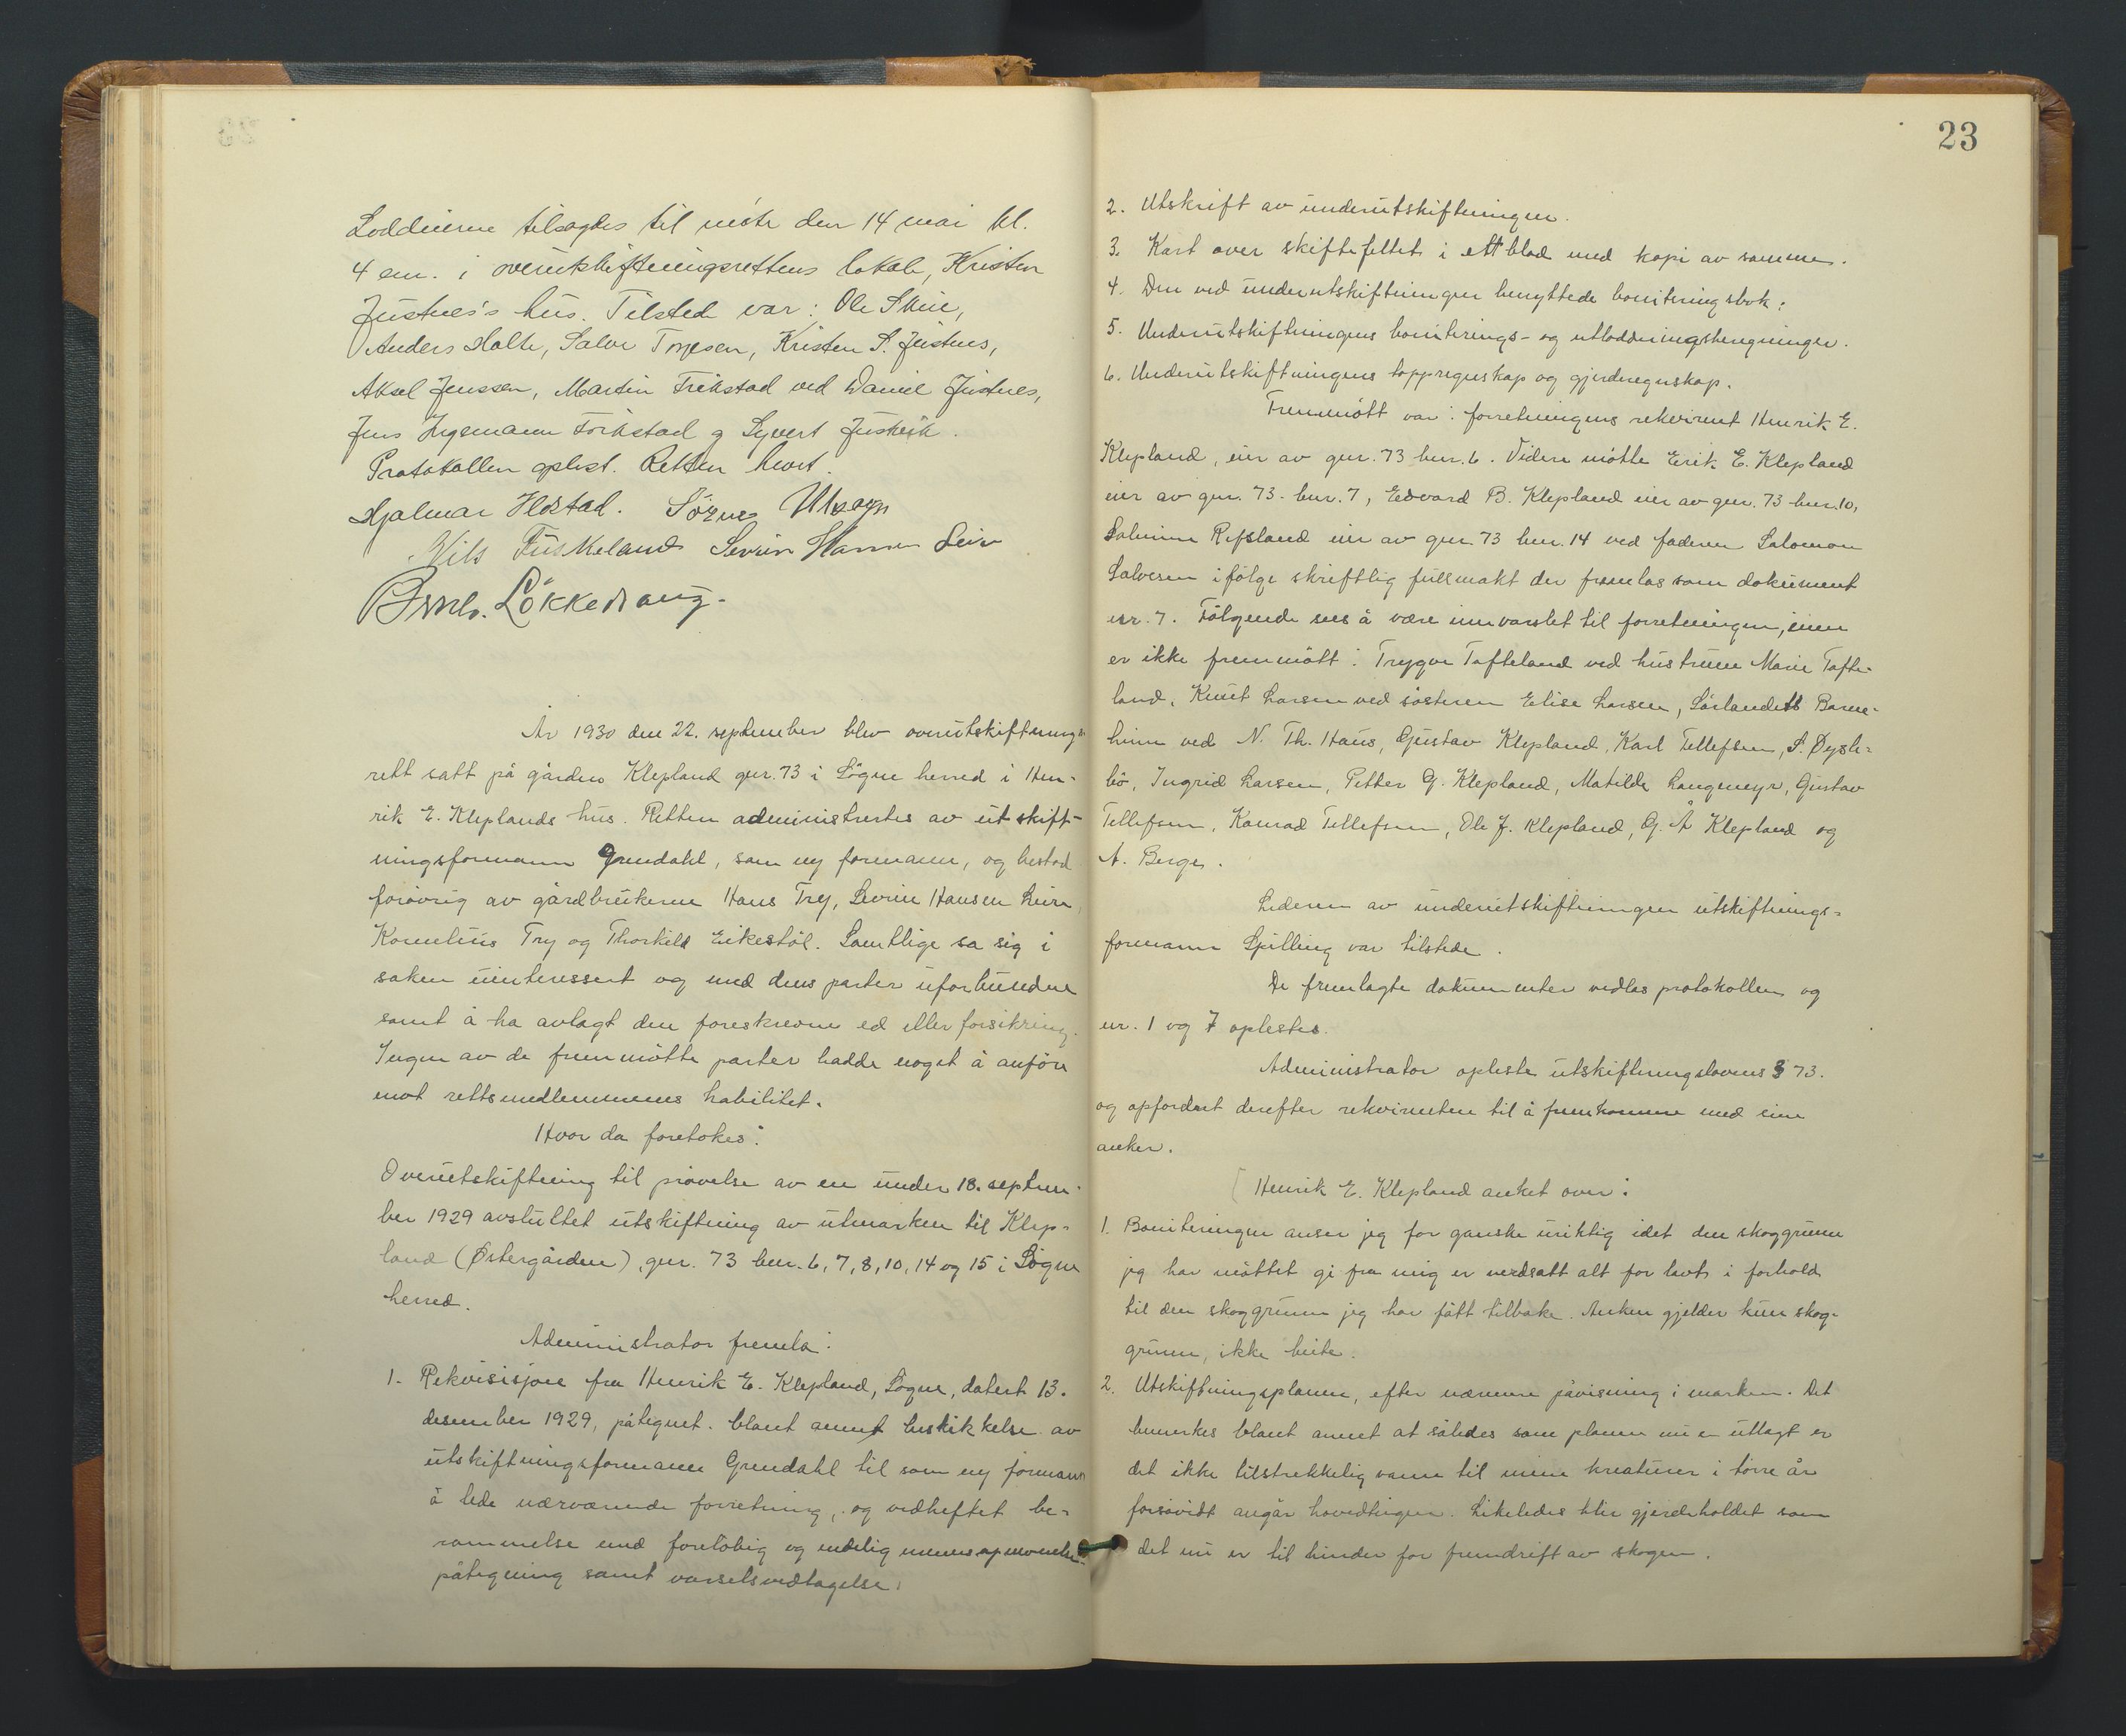 Loddeierne tilsagdes til möte den 14 mai kl.
4 em. i overutskiftningsrettens lokale, Kristen
Justnes's hus. Tilstede var: Ole Skeie,
Anders Holte, Salve Torjesen, Kristen S. Justnes,
Aksel Jenssen, Martin Frikstad ved Daniel Justnes,
Jens Ingemann Frikstad og Syvert Justvik.
Protokollen oplest. Retten hevet.
Hjalmar Ilestad. Sören Utsogn
Nils Fuskeland Severin Hansen Leire
Bernh. Lökkedraug.
År 1930 den 22. september blev overutskiftnings
rett satt på gården Klepland gnr. 73 i Sögne herred i Hen-
rik E. Kleplands hus. Retten administrertes av utskift-
ningsformann Grendahl, som ny formann, og bestod
forövrig av gårdbrukerne Hans Try, Severin Hansen Leire,
Kornelius Try og Thorkild Eikestöl. Samtlige sa sig i
saken uinteressert og med dens parter uforbundne
samt å ha avlagt den foreskrevne ed eller forsikring.
Ingen av de fremmötte parter hadde noget å anföre
mot rettsmedlemmenes habilitet.
Hvor da foretokes:
Overutskiftning til prövelse av en under 18. septem-
ber 1929 avsluttet utskiftning av utmarken til Klep-
land (Östergården), gnr. 73 bnr. 6, 7, 8, 10, 14 og 15 i Sögne
herred.
Administrator fremla:
1. Rekvisisjon fra Henrik E. Klepland, Sögne, datert 13.
desember 1929, påtegnet blant annet beskikkelse av
utskiftningsformann Grendahl til som ny formann
å lede nærværende forretning, og vedheftet be-
rammelse med forelöbig og endelig
påtegning samt varselsvedtagelse.
23
2. Utskrift av underutskiftningen.
3. Kart over skiftefeltet i ett blad med kopi av samme.
4. Den ved underutskiftningen benyttede boniteringsbok.
5. Underutskiftningens boniterings- og utloddningsberegninger.
6. Underutskiftningens loppregnskap og gjerderegnskap.
Fremmött var: forretningens rekvirent Henrik E.
Klepland, eier av gnr. 73 bnr. 6. Videre mötte Erik E. Klepland
eier av gnr. 73. bnr. 7, Edvard B. Klepland eier av gnr. 73 bnr. 10,
Refsland eier av gnr. 73 bnr. 14 ved faderen Salomon
Salvesen ifölge skriftlig fullmakt der fremlas som dokument
nr. 7. Fölgende sees å være innvarslet til forretningen, men
er ikke fremmött: Trygve Tofteland ved hustruen Marie Tofte-
land, Knut Larsen ved sösteren Elise Larsen, Sörlandets Barne-
hjem ved N. Th. Haus, Gustav Klepland, Karl Tellefsen, S. Öysle-
bö, Ingrid Larsen, Petter G. Klepland, Matilde Langemyr, Gustav
Tellefsen, Konrad Tellefsen, Ole J. Klepland, G. Å Klepland og
A. Berge.
Lederen av underutskiftningen utskiftnings-
formann Spilling var tilstede.
De fremlagte dokumenter vedlas protokollen og
nr. 1 og 7 oplestes.
Administrator opleste utskiftningslovens § 73.
og opfordret derefter rekvirenten til å fremkomme med sine
anker.
[ Henrik E. Klepland anket over:
1. Boniteringen anser jeg for ganske uriktig idet den skoggrunn
jeg har måttet gi fra mig er verdsatt alt for lavt i forhold
til den skoggrunn jeg har fått tilbake. Anken gjelder kun skog-
grunn, ikke beite.
2. Utskiftningsplanen, efter nærmere påvisning i marken. Det
bemerkes blant annet at således som planen nu er utlagt er
det ikke tilstrekkelig vann til mine kreaturer i törre år
forsåvidt angår hovedteigen. Likeledes blir gjerdeholdet som
det nu er til hinder for fremdrift av skogen.